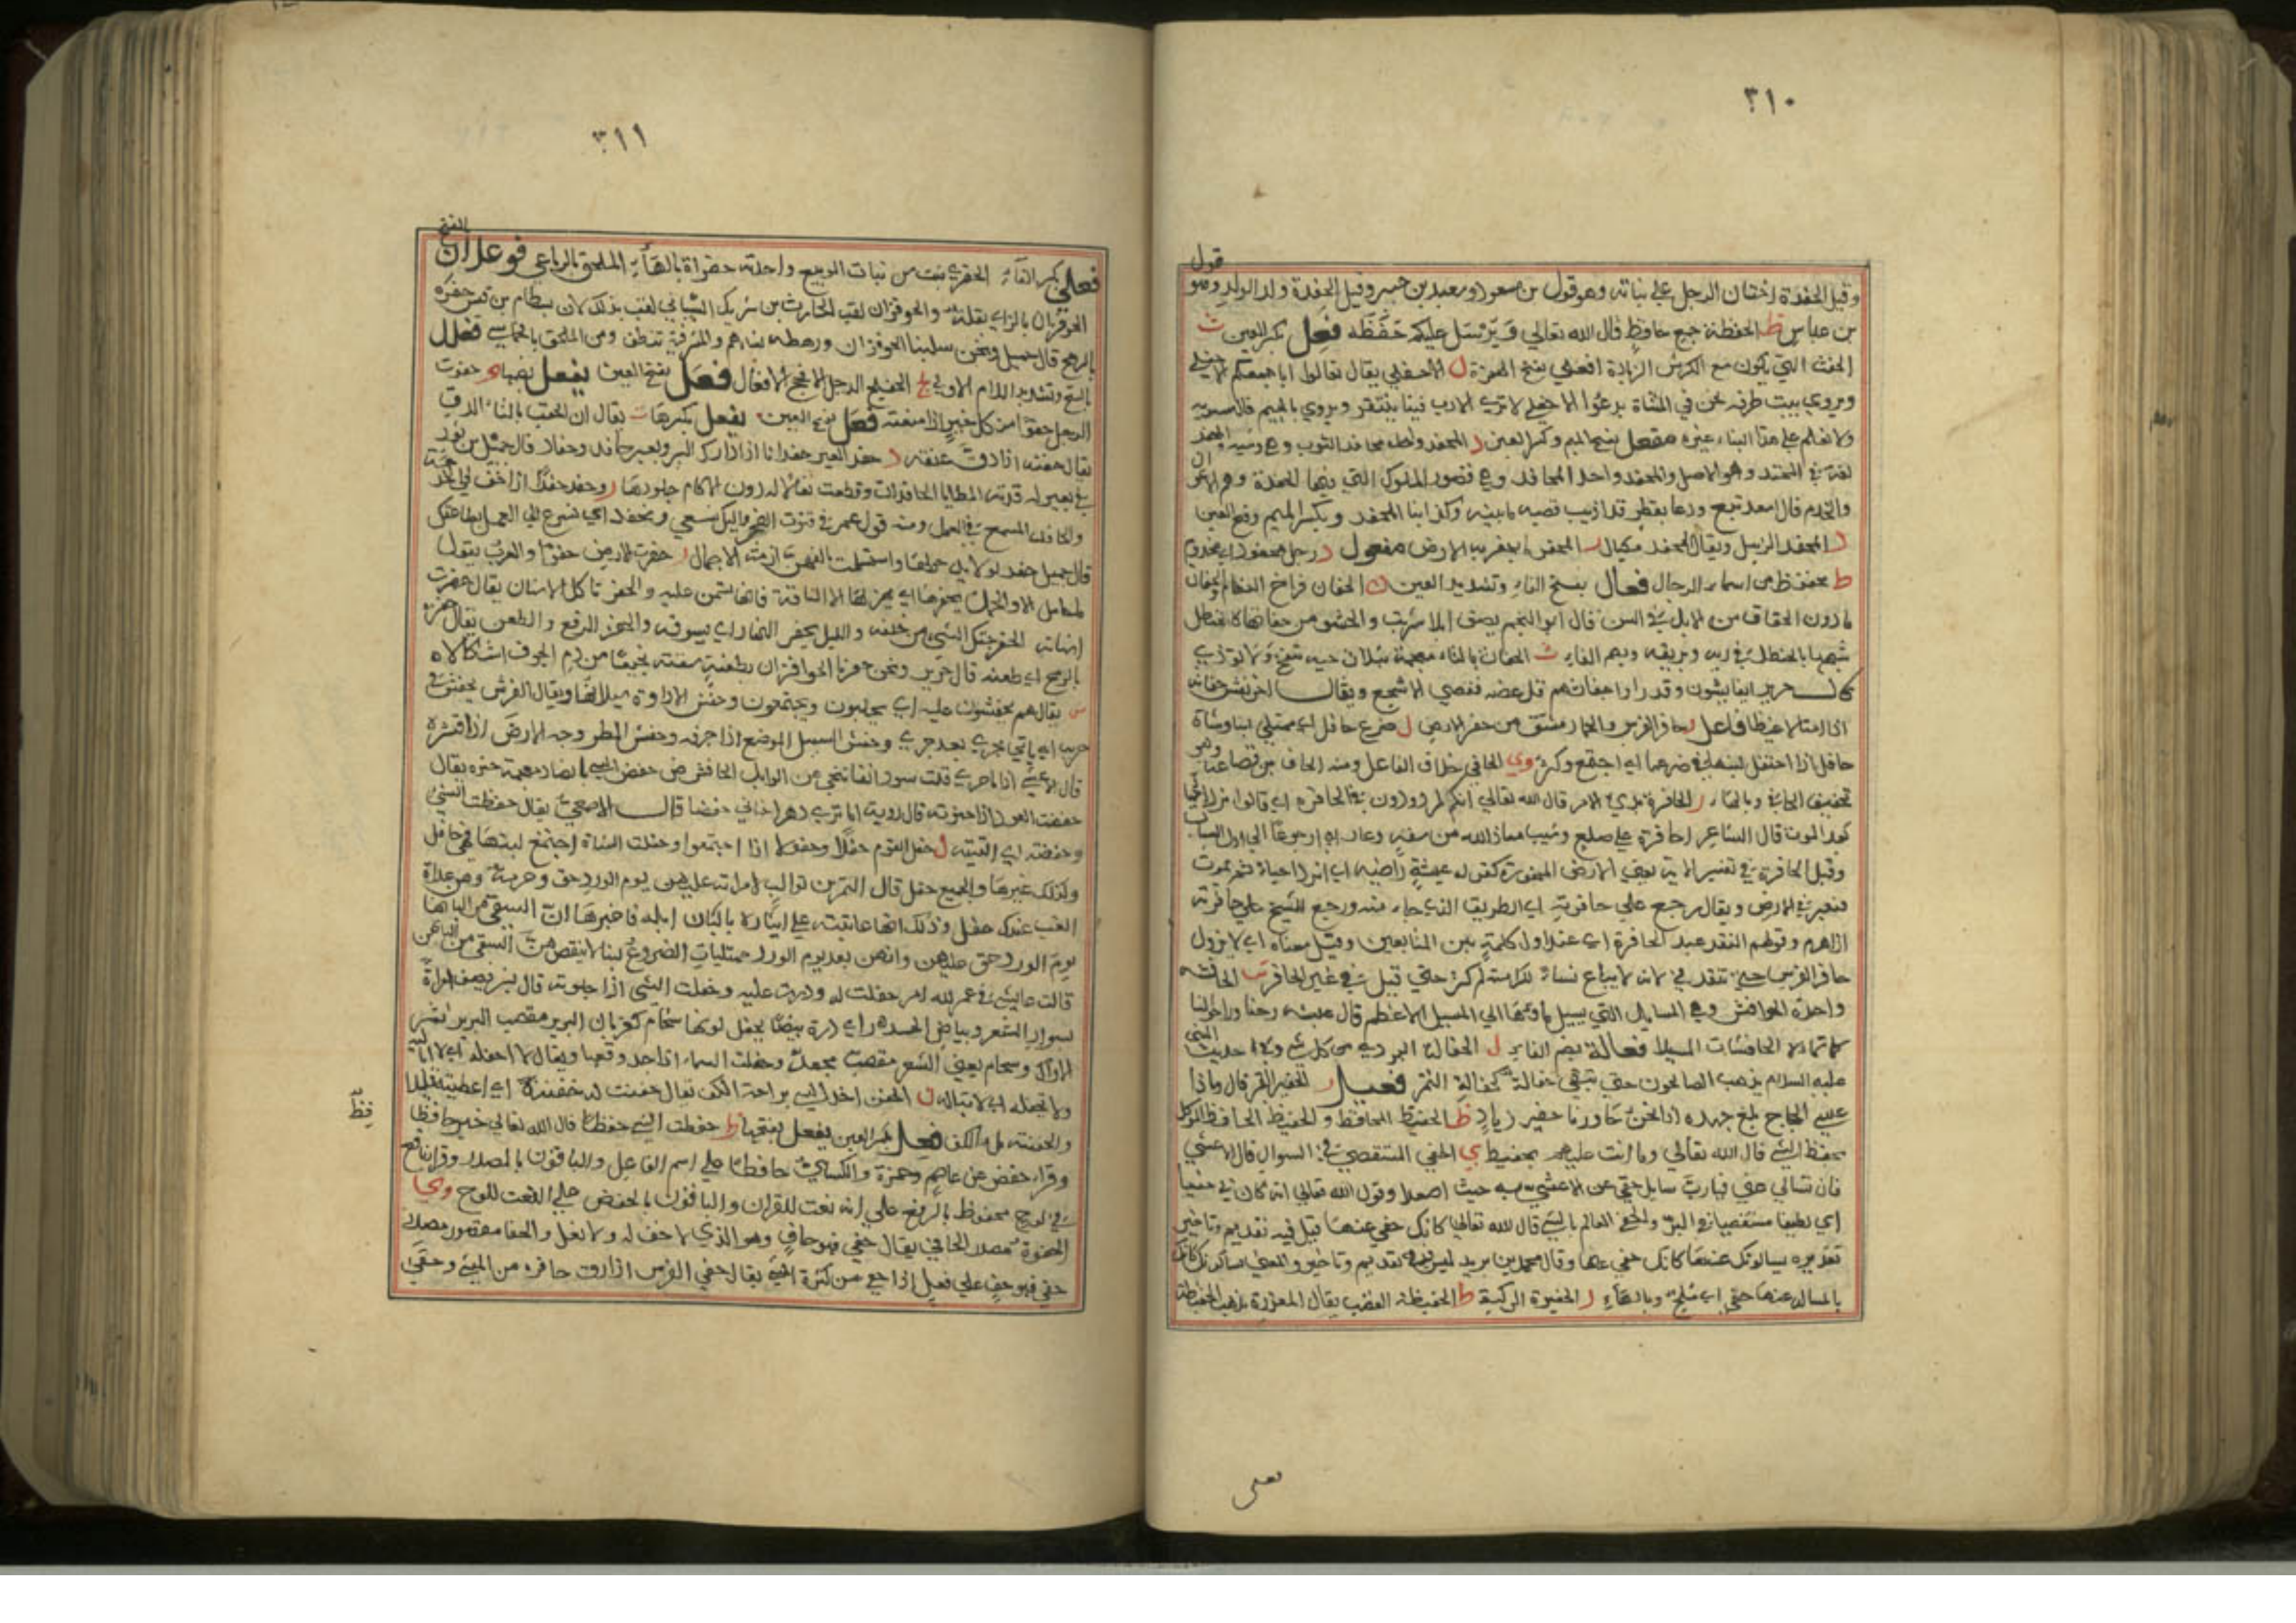 ٣١٠
قول
وقيل الحفدة اختان الرجل على بناته وهو قول بن مسعود وسعيد بن جبير وقيل الحفدة ولد الولد وهو
بن عباس ظ الحفظة جمع حافظ قال الله تعالى ويرسل عليكم حفظه فعل بكسر العين ث
الحفث التي يكون مع الكرش الزيادة افعلى بفتح الهمزة ل الاحفلى يقال تعالوا اباجمعكم
ويروى بيت طرفه نحن في المشتاة ندعوا الاحفلى لا ترى الادب فينا ينتقر ويروى بالجيم قال سيبويه
ولا نعلم على هذا البناء غيره مفعل بفتح الميم وكسر العين د المحفد واحد محافد الثوب وهي وشيه
لغة في المحتد وهو الاصل والمحفد واحد المحافد وهي قصور الملوك التي فيها الحفدة وهم الاعوان
والخدم قال اسعد تبع
د المحفد الزبيل ويقال المحفد مكيال المحفر ما يحفر به الارض مفعول د رجل محفود اي مخدوم
ظ محفوظ من اسماء الرجال فعال بفتح الفاء وتشديد العين ن الحفان فراخ النعام والحفان
ما دون الحقاق من الابل في السن قال ابو النجم يصف ابلا شربت والحشو من حفانها كالحنظل
شبهها بالحنظل في ريه وبريقه وبهم الفاء ث الحفاث بالثاء معجمة بثلاث حيه تنفخ ولا توذي
قال جرير ايفايشون وقد راوا حفاثهم قد عضه فقضى الاشجع ويقال احرنفش حفاثه
اذا امتلا غيظا فاعل ر حافر الفرس والحمار مشتق من حفر الارض ل ضرع حافل اي ممتلي لبنا وشاة
حافل اذا احتفل لبنها في ضرعها اي اجتمع وكثر وي الحافي خلاف الفاعل ومنه الحاف بن قضاعة وهو
تخفيف الحافي وبالهاء ر الحافرة بدي الامر قال الله تعالى ائنكم لمردودون في الحافرة اي قالوا
بعد الموت قال الشاعر احافرة على صلع وشيب معاذ الله من سفه وعار اي ارجوعا الى اول الشباب
وقيل الحافرة في تفسير الاية يعني الارض المحفورة كقوله عيشة راضيه اي انرد احياء ثم نموت
فنقبر في الارض ويقال رجع على حافرته اي الطريق الذي جاء منه ورجع الشيخ على حافرته
اذا هرم وقولهم النقد عند الحافرة اي عند اول كلمة بين المتبايعين وقيل معناه اي لا يزول
حافر الفرس حتى تنقد لانه لا يباع نساء لكرامته ثم كثر حتى قيل في غير الحافر ش الحافشه
واحدة الحوافش وهي المسايل التي يسيل ماؤها الى المسيل الاعظم قال عبيد رحنا وراحوا لنا
فعالة بضم الفاء ل الحفالة الردي من كل شي وفي حديث النبي
عليه السلام يذهب الصالحون حتى تبقى حفالة كحفالة التمر فعيل ر الحفير القبر قال وماذا
عسى الحجاج يبلغ جهده اذا نحن جاوزنا حفير زياد ظ الحفيظ المحافظ والحفيظ الحافظ الموكل
بحفظ الشي قال الله تعالى وما انت عليهم بحفيظ ي الحفي المستقصي في السوال قال الاعشى
فان تسالي عني فيا رب سايل حفي عن الاعشى به حيث اصعدا وقول الله تعالى انه كان بي حفيا
اي لطيفا مستقصيا في البر والحفي العالم بالشي قال الله تعالى كانك حفي عنها قيل فيه تقديم وتاخير
تقديره يسالونك عنها كانك حفي بها وقال محمد بن يزيد ليس فيه تقديم وتاخير والمعنى يسالونك كانك
بالمساله عنها حفي اي ملح وبالهاء ر الحفيرة الركية ظ الحفيظة الغضب يقال المعذرة تذهب الحفيظة
فعلى
٣١١
الفتح
فعلى بكسر الفاء ي الحفرى نبت من نبات الربيع واحدته حفراة بالهاء الملحق بالرباعي فوعلان
الحوفزان بالزاي بقلة والحوفزان لقب الحارث بن شريك الشيباني لقب بذلك لان بسطام بن قيس حفزه
بالرمح قال جميل ونحن سلبنا الحوفزان ورهطه نساهم والمشرفية تنطف ومن الملحق بالخماسي فعلل
بالفتح وتشديد اللام الاولى ج الحفلج الرجل الافحج الافعال فعل بفتح العين يفعل بضمها و حفوت
الرجل حفوا من كل خير اذا منعته فعل بفتح العين يفعل بكسرها ت يقال ان الحفت بالتاء الدق
يقال حفته اذا دق عنقه د حفد البعير حفدانا اذا دارك السير وبعير حافد وحفاد قال حميد بن ثور
في بعير له فدته المطايا الحافدات وقطعت نعالا له دون الاكام جلودها وحفد حفدا اذا خف في الخدمة
والحافد المسرع في العمل ومنه قول عمر في قنوت الفجر واليك نسعى ونحفد اي نسرع الى العمل بطاعتك
قال جميل حفد الولايد حولهن واسلمت باكفهن ازمة الاجمال ر حفرت الارض حفرا والعرب تقول
للحامل الا والحمل يحفرها اي يهزلها الا الناقة فانها تسمن عليه والحفر تاكل الاسنان يقال حفرت
اسنانه الحفز حثك الشي من خلفه والليل يحفز النهار اي يسوقه والحفز الدفع والطعن يقال حفزه
بالرمح اي طعنه قال جرير ونحن حفزنا الحوفزان بطعنة سقته نجيعا من دم الجوف اشكلا
ش يقال هم يحفشون عليه اي يجلبون ويجتمعون وحفش الاداوة سيلانها ويقال الفرس يحفش في
جريه اي ياتي بجري بعد جري وحفش السيل الموضع اذا جرفه وحفش المطر وجه الارض اذا قشره
حفضت العود اذا حنوته قال رؤبة اما ترى دهرا حناني حفضا قال الاصمعي يقال حفضت الشي
وحفضته اي القيته ل حفل القوم حفلا وحفولا اذا اجتمعوا وحفلت الشاة اجتمع لبنها فهي حافل
وكذلك غيرها والجميع حفل قال النمر بن تولب لامراته عليهن يوم الورد حق وحرمة وهن غداة
الغب عندك حفل وذلك انها عاتبته على ايثاره بالبان ابله فاخبرها ان السقي من البانها
يوم الورد حق عليهن وانهن بعد يوم الورد ممتليات الضروع لبنا لا ينقصهن السقي من البانهن
قالت عايشة في عمر لله ام حفلت له ودرت عليه وحفلت الشي اذا جلوته قال بشر يصف امراة
بسواد الشعر وبياض الجسد راى درة بيضا يحفل لونها سخام كغربان البرير مقصب البرير ثمر
الاراك وسخام يعني الشعر مقصب مجعد وحفلت السماء اذا جد وقعها ويقال لا احفله اي لا ابالي
ولا تحفله اي لا تباله ن الحفن اخذ الشي براحة الكف يقال حفنت له حفنة اي اعطيته قليلا
والحفنة مل الكف فعل بكسر العين يفعل بفتحها ظ حفظت الشي حفظا قال الله تعالى خير حافظا
وقراء حفص عن عاصم وحمزة والكسائي حافظا على اسم الفاعل والباقون بالمصدر وقرا نافع
في لوح محفوظ بالرفع على انه نعت للقران والباقون بالخفض على النعت للوح وي
الحفوة مصدر الحافي يقال حفي فهو حاف وهو الذي لا خف له ولا نعل والحفا مقصور مصدر
حفي فهو حف على فعل اذا وجع من كثرة المشي يقال حفي الفرس اذا رق حافره من المشي وحفي